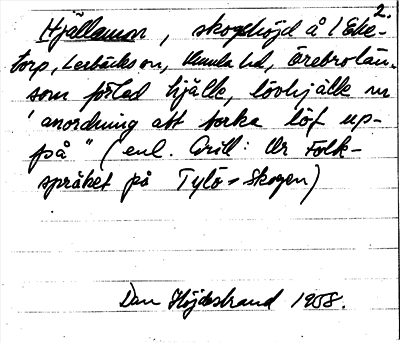 2.
Hjällamon, skogshöjd å 1 Eke-
torp, Lerbäcks sn, Kumla hd, Örebro län.
som förled hjälle, lövhjälle m
"anordning att torka löf up-
på" (enl. Grill: Ur Folk-
språket på Tylö-skogen)
Dan Höjdestrand 1958.